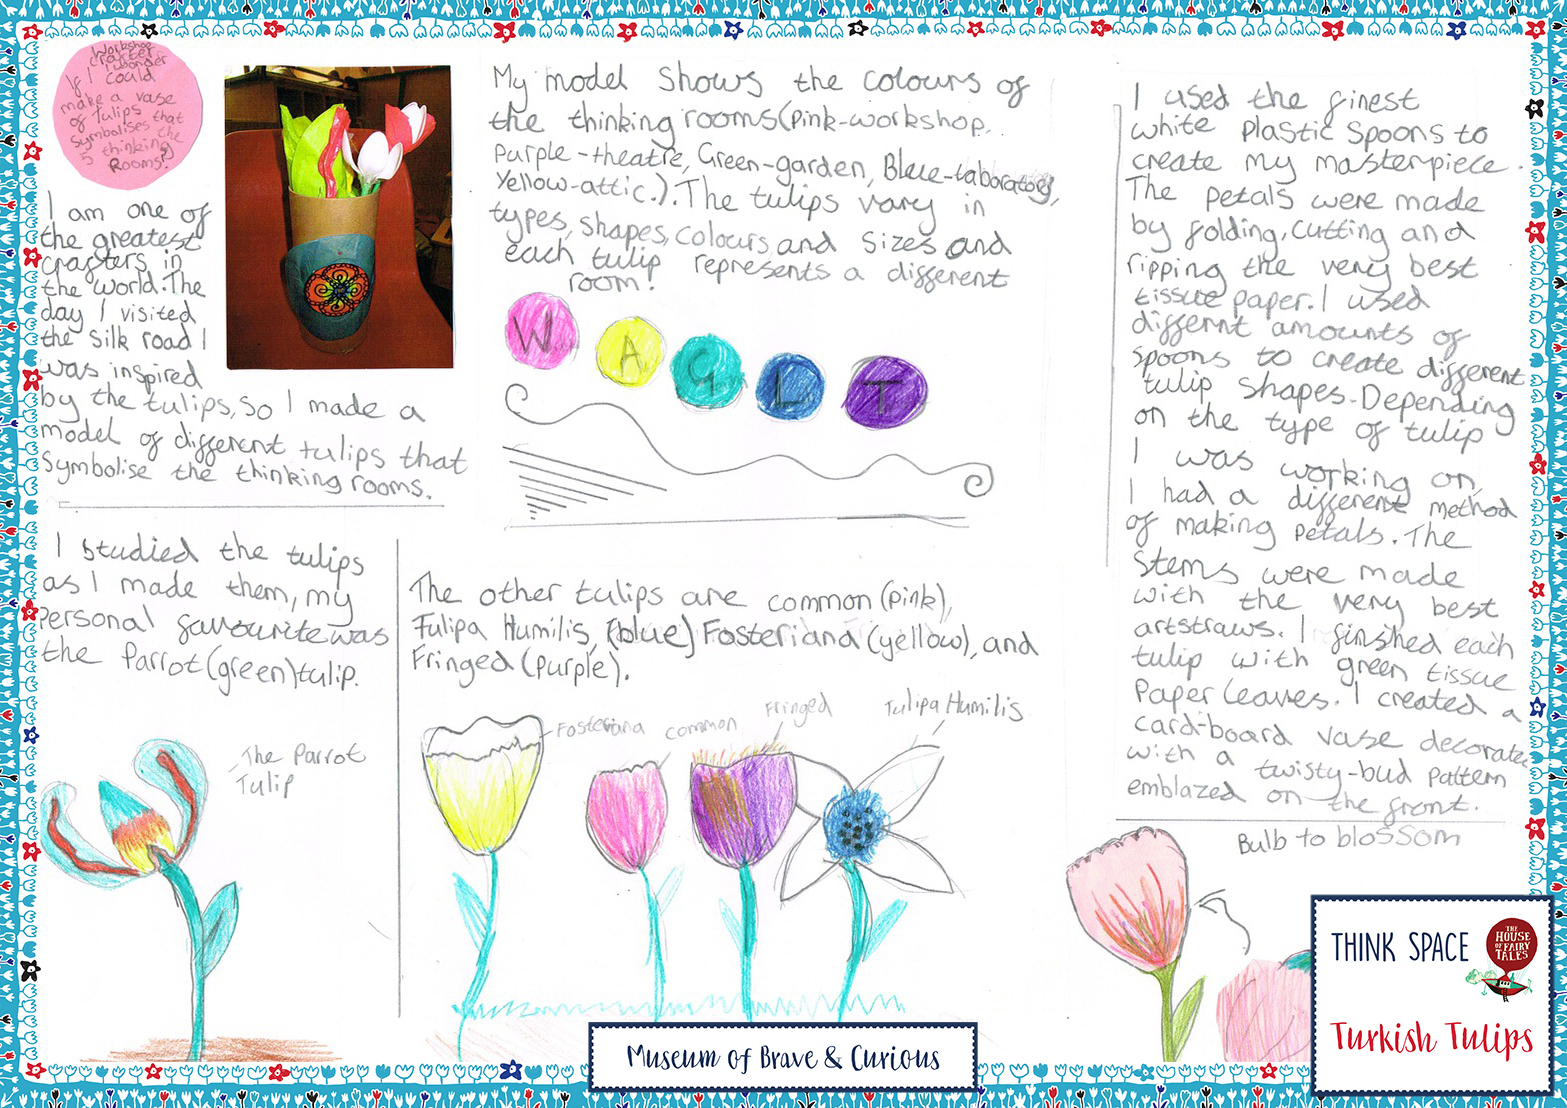 Workshop
crafter
I wonder
If I could
make a vase
of tulips that
symbolises the
5 thinking
Rooms?
I am one of
the greatest
crafters in
the world. The
day I visited
the silk road I
was inspired
by the tulips, so I made a
model of different tulips that
Symbolise the thinking rooms.
My model shows the colours of
the thinking rooms (pink-workshop,
Purple-theatre, Green-garden, Blue-laboratory,
Yellow-attic.). The tulips vary in
types, shapes, colours and sizes and
each tulip represents a different
room!
W A G L T
I studied the tulips
as I made them, my
personal favourite was
the Parrot (green) tulip.
The Parrot
Tulip
The other tulips are common (pink),
Tulipa Humilis, (blue) Fosteriana (yellow), and
Fringed (purple).
Fosteriana
common
Fringed
Tulipa Humilis
I used the finest
white plastic spoons to
create my masterpiece.
The petals were made
by folding, cutting and
ripping the very best
tissue paper. I used
differnt amounts of
spoons to create different
tulip shapes. Depending
on the type of tulip
I was working on,
I had a different method
of making petals. The
stems were made
with the very best
artstraws. I finished each
tulip with green tissue
paper leaves. I created a
card-board vase decorated
with a twisty-bud pattern
emblazed on the front.
Bulb to blossom
THINK SPACE
THE
HOUSE
OF FAIRY
TALES
Turkish Tulips
Museum of Brave & Curious